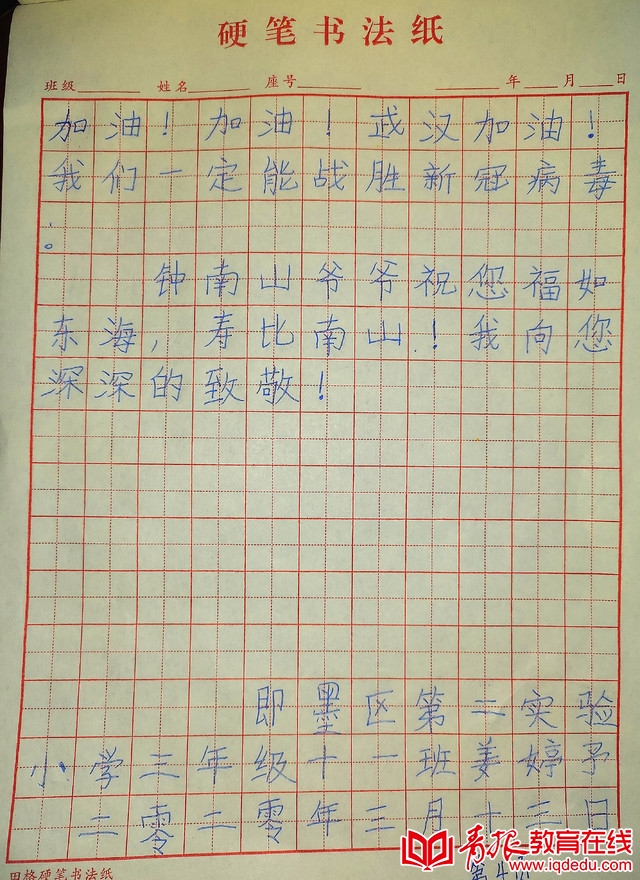 硬笔书法纸
班级 姓名 座号 年 月 日
加油！加油！武汉加油！
我们一定能战胜新冠病毒
。
钟南山爷爷祝您福如
东海，寿比南山！我向您
深深的致敬！
即墨区第二实验
小学三年级十一班姜婷予
二零二零年三月十三日
田格硬笔书法纸
第4
青报教育在线
www.iqdedu.com